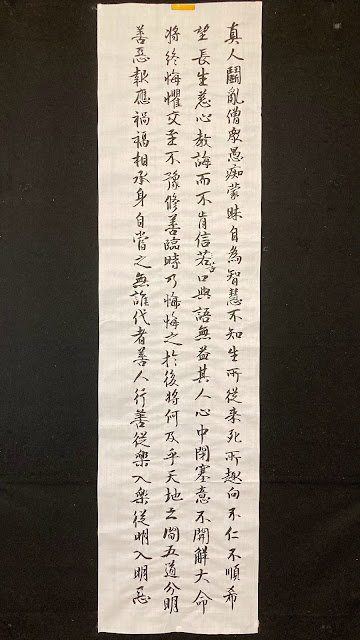 真人鬪亂僧衆愚痴蒙昧自為智慧不知生所從来死所趣向不仁不順希
望長生慈心教誨而不肯信苦口與語無益其人心中閉塞意不開解大命
将終悔懼交至不豫修善臨時乃悔悔之於後将何及乎天地之間五道分明
善惡報應禍福相承身自當之無誰代者善人行善従樂入樂従明入明惡